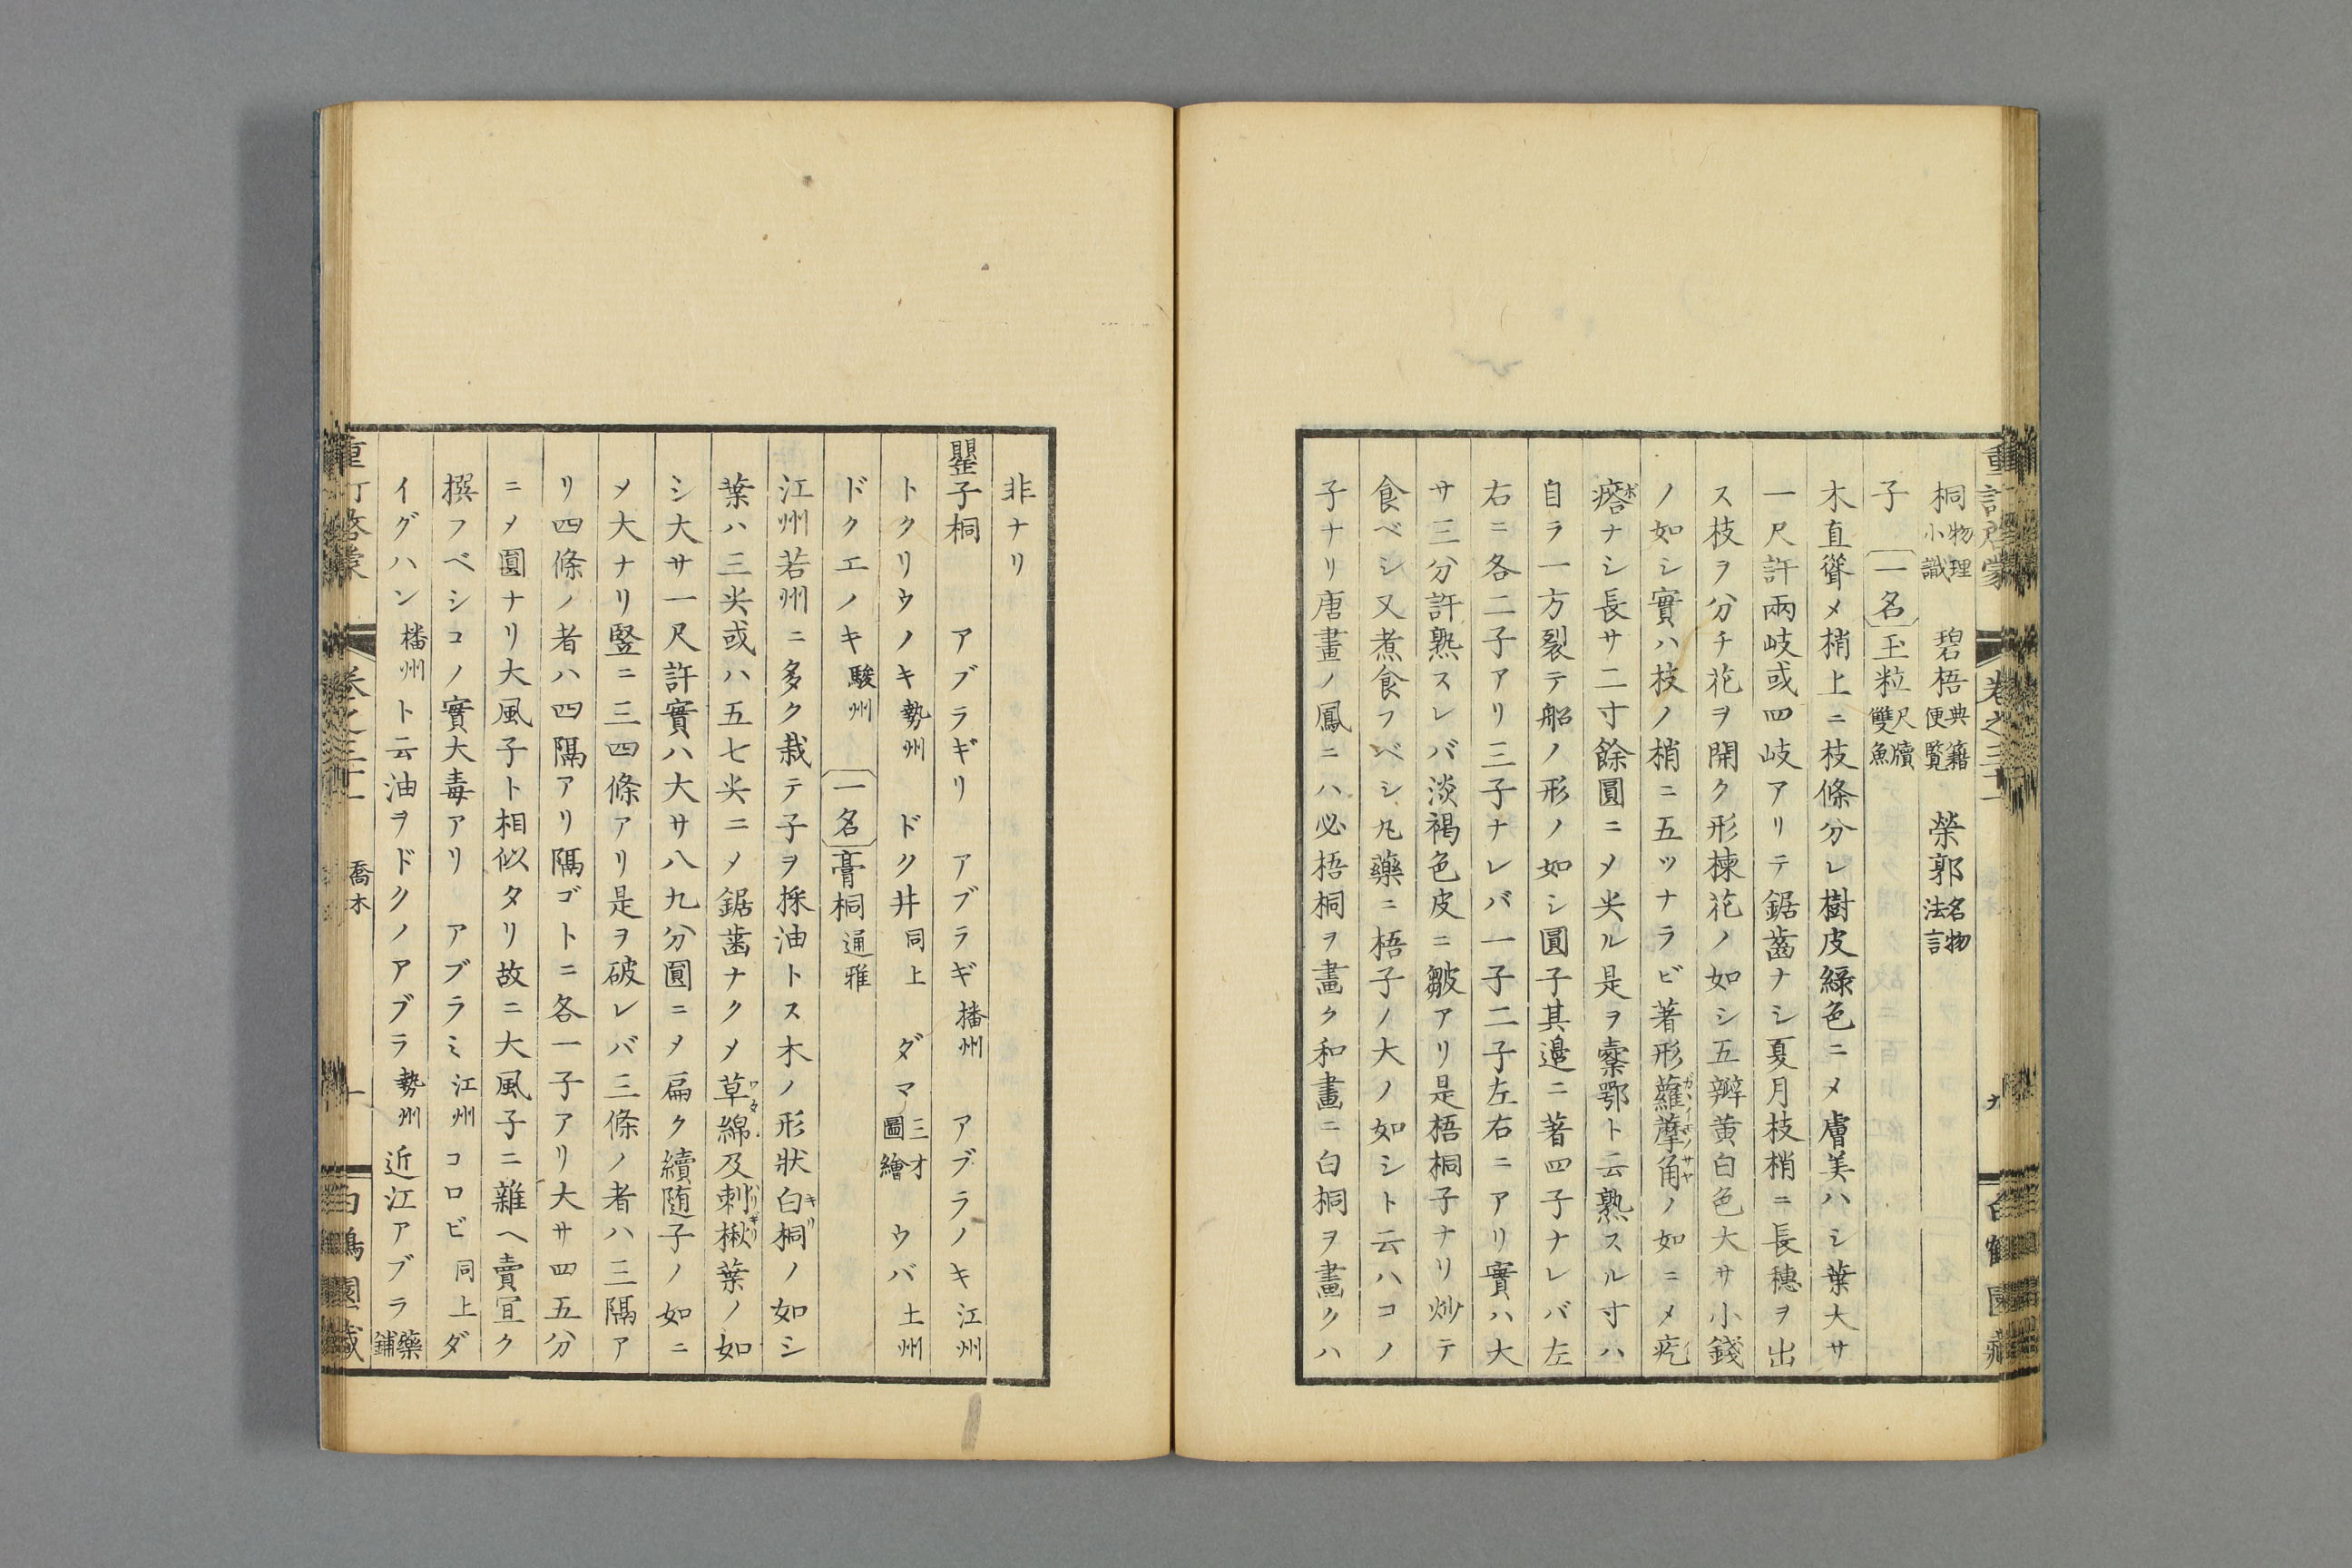 重訂啓蒙 卷之三十一 九 白鶴園藏
桐物理小識 碧梧典籍便覧 榮郭名物法言
子〔一名〕玉粒尺牘雙魚
木直聳メ梢上ニ枝條分レ樹皮綠色ニメ膚美ハシ葉大サ
一尺許兩岐或四岐アリテ鋸齒ナシ夏月枝梢ニ長穗ヲ出
ス枝ヲ分チ花ヲ開ク形楝花ノ如シ五瓣黄白色大サ小錢
ノ如シ實ハ枝ノ梢ニ五ツナラビ著形蘿藦角ノ如ニメ疙
瘩ナシ長サ二寸餘圓ニメ尖ル是ヲ櫜鄂ト云熟スル寸ハ
自ラ一方裂テ船ノ形ノ如シ圓子其邉ニ著四子ナレバ左
右ニ各二子アリ三子ナレバ一子二子左右ニアリ實ハ大
サ三分許熟スレバ淡褐色皮ニ皺アリ是梧桐子ナリ炒テ
食ベシ又煮食フベシ凡藥ニ梧子ノ大ノ如シト云ハコノ
子ナリ唐畫ノ鳳ニハ必梧桐ヲ畫ク和畫ニ白桐ヲ畫クハ
非ナリ
罌子桐 アブラギリ アブラギ播州 アブラノキ江州
トクリウノキ勢州 ドク井同上 ダマ三才圖繪 ウバ土州
ドクエノキ駿州 〔一名〕膏桐通雅
江州若州ニ多ク栽テ子ヲ採油トス木ノ形狀白桐ノ如シ
葉ハ三尖或ハ五七尖ニメ鋸齒ナクメ草綿及刺楸葉ノ如
シ大サ一尺許實ハ大サ八九分圓ニメ扁ク續随子ノ如ニ
メ大ナリ竪ニ三四條アリ是ヲ破レバ三條ノ者ハ三隔ア
リ四條ノ者ハ四隔アリ隔ゴトニ各一子アリ大サ四五分
ニメ圓ナリ大風子ト相似タリ故ニ大風子ニ雜ヘ賣宜ク
撰フベシコノ實大毒アリ アブラミ江州 コロビ同上 ダ
イグハン播州ト云油ヲドクノアブラ勢州 近江アブラ藥鋪
重訂啓蒙 卷之三十一 喬木 十 白鶴園藏